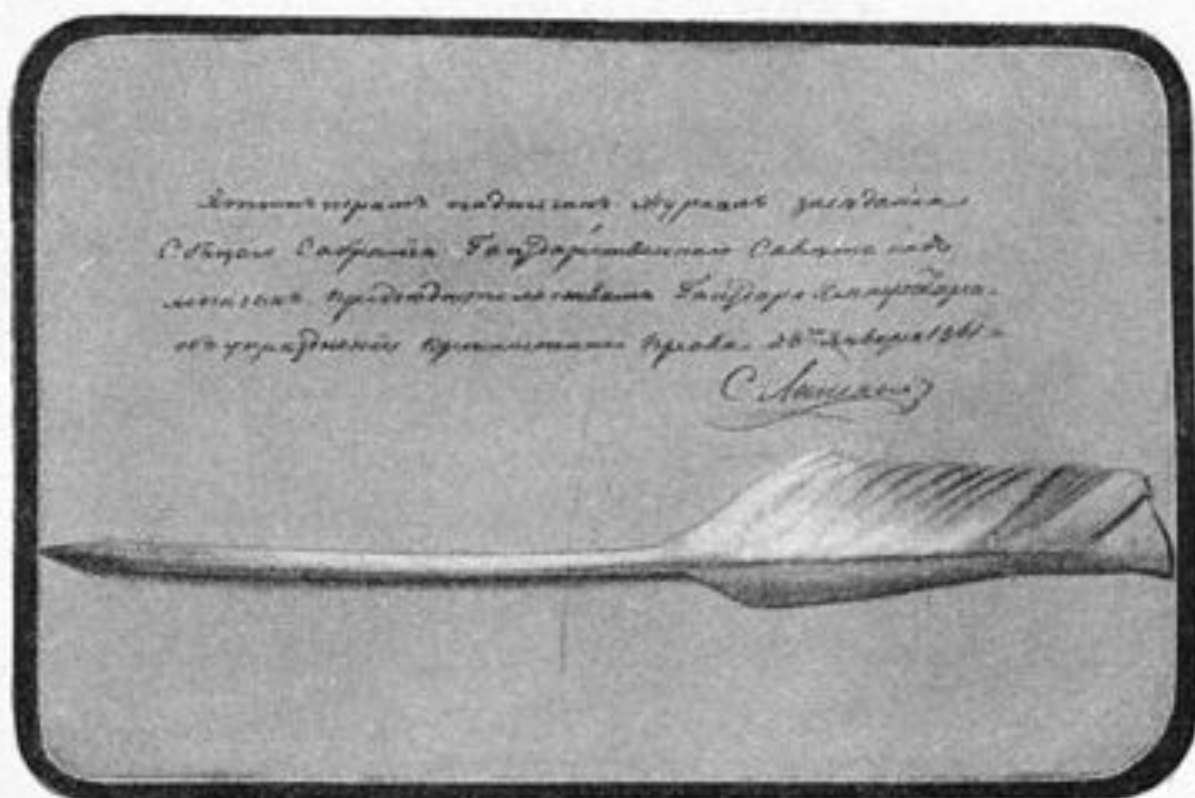 Этимъ перомъ подписанъ Журналъ засѣданія
Общаго Собранія Государственнаго Совѣта подъ
личнымъ предсѣдательствомъ Государя Императора
объ упраздненіи крѣпостнаго права 28го Января 1861
С Ланской